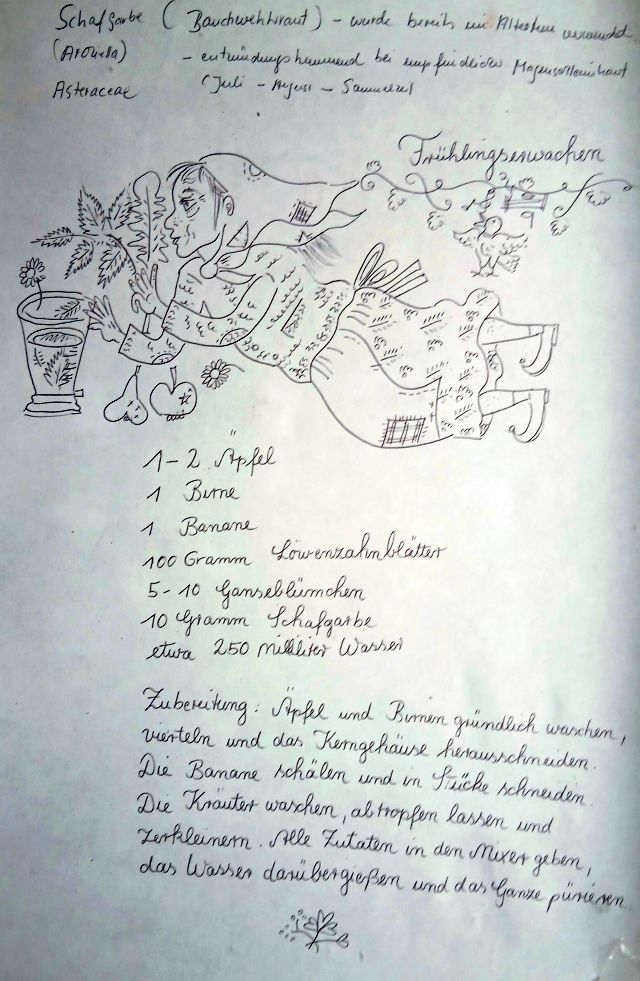 Schafgarbe (Bauchwehkraut) - wurde bereits im Altertum verwendet
- entzündungshemmend bei empfindlicher Magenschleimhaut
Asteraceae (Juli - August -
Frühlingserwachen
1-2 Äpfel
1 Birne
1 Banane
100 Gramm Löwenzahnblätter
5-10 Ganseblümchen
10 Gramm Schafgarbe
etwa 250 Milliliter Wasser
Zubereitung: Äpfel und Birnen gründlich waschen,
vierteln und das Kerngehäuse herausschneiden.
Die Banane schälen und in Stücke schneiden.
Die Kräuter waschen, abtropfen lassen und
zerkleinern. Alle Zutaten in den Mixer geben,
das Wasser darübergießen und das Ganze pürieren